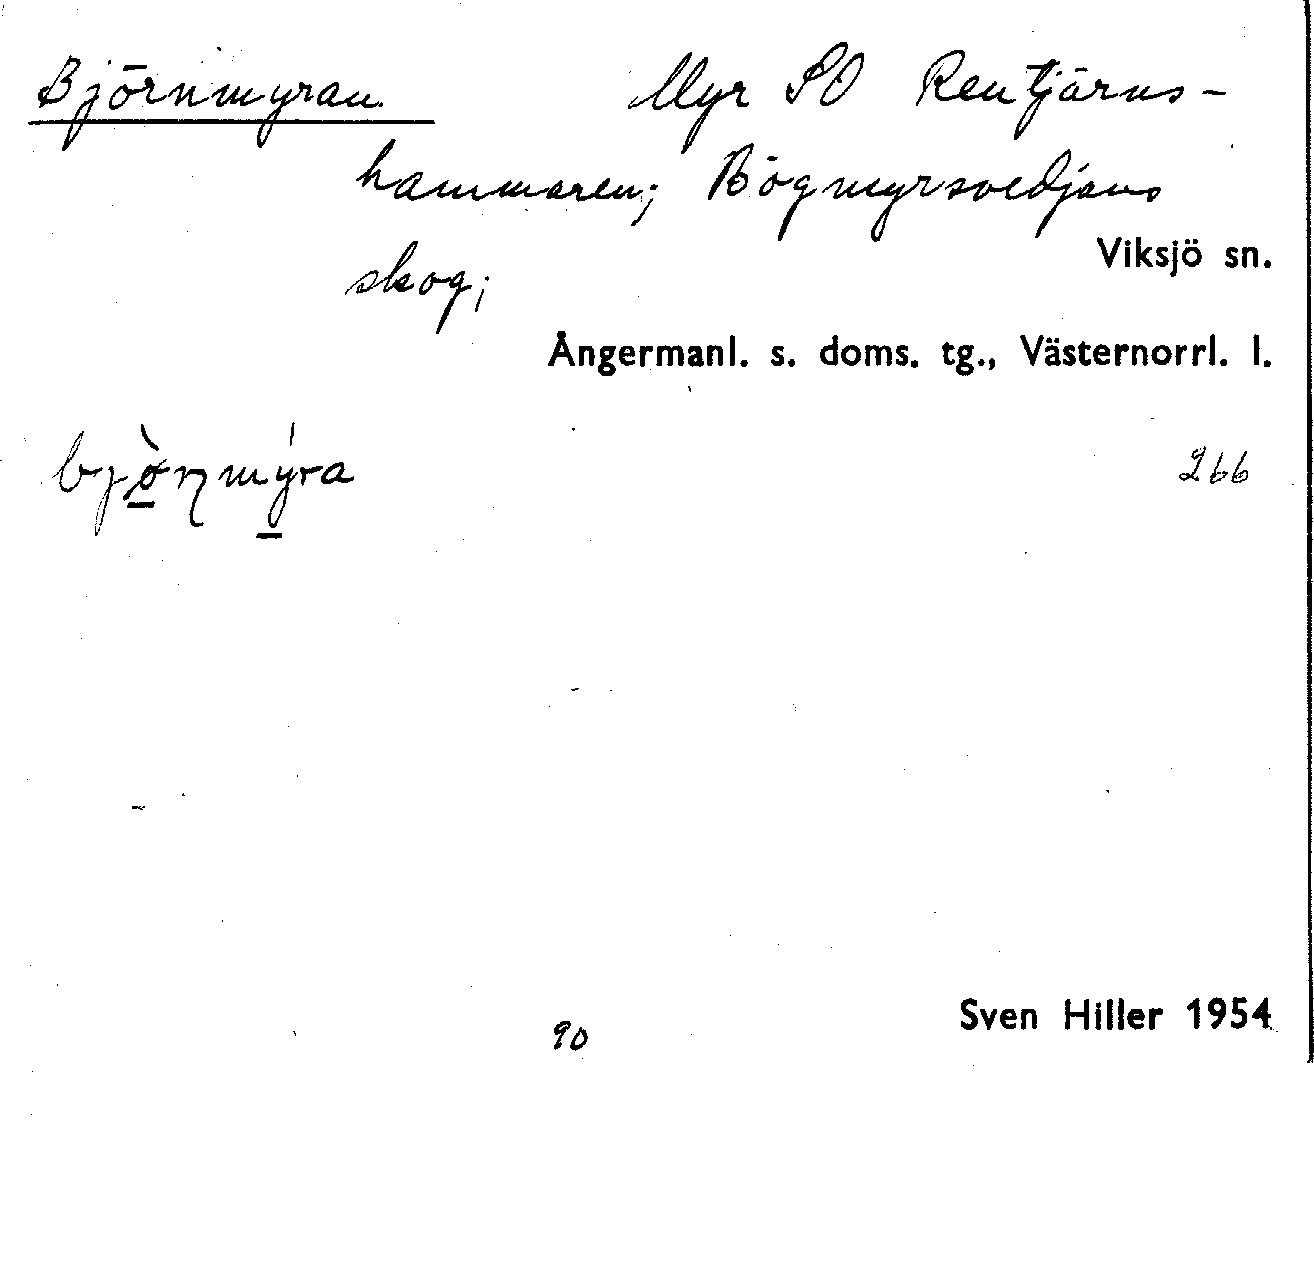 Björnmyran Myr SO Rentjärns-
hammaren; Bögmyrsvedjans
Viksjö sn.
skog;
Ångermanl. s. doms. tg., Västernorrl. l.
266
Sven Hiller 1954
90